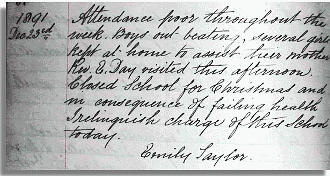 1891 Attendance poor throughout the
Dec 23rd week. Boys out beating, several girls
kept at home to assist their mother
Rev. E. Day visited this afternoon.
Closed School for Christmas and
in consequence of failing health
I relinquish charge of this School
today.
Emily Taylor.